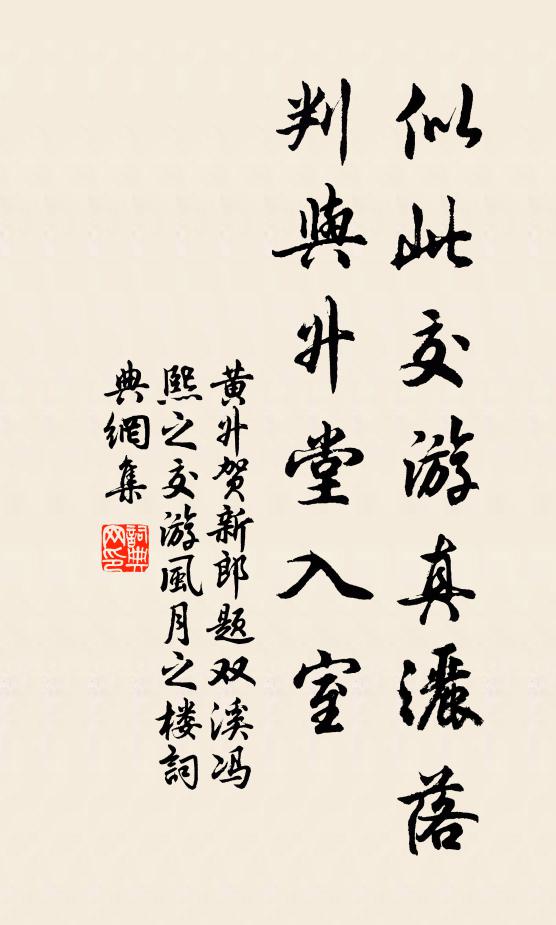 似此交游真灑落
判與升堂入室
黄升贺新郎题双溪冯
熙之交游風月之楼詞
典網集
詞典网印